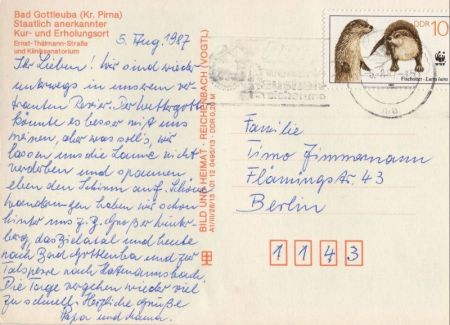 Bad Gottleuba (Kr. Pirna)
Staatlich anerkannter
Kur- und Erholungsort
Ernst-Thälmann-Straße
und Kliniksanatorium
5. Aug. 1987
Ihr Lieben! Wir sind wieder
unterwegs in unserem ver-
trauten Revier. Der Wettergott
könnte es besser mit uns
meinen, aber was soll's, wir
lassen uns die Laune nicht
verderben und spannen
eben den Schirm auf. Schöne
Wanderungen haben wir schon
hinter uns z.B. Großer Winter-
berg, das Bielatal und heute
nach Bad Gottleuba und zur
Talsperre nach Hartmannsbach.
Die Tage vergehen wieder viel
zu schnell. Herzliche Grüße
Papa und Mama.
BILD UND HEIMAT · REICHENBACH (VOGTL)
A1/III/26/13 01 12 0495/13 · DDR 0,20 M
DDR 10
WWF
Fischotter · Lutra lutra
Familie
Timo Zimmermann
Flämingstr. 43
Berlin
1 1 4 3